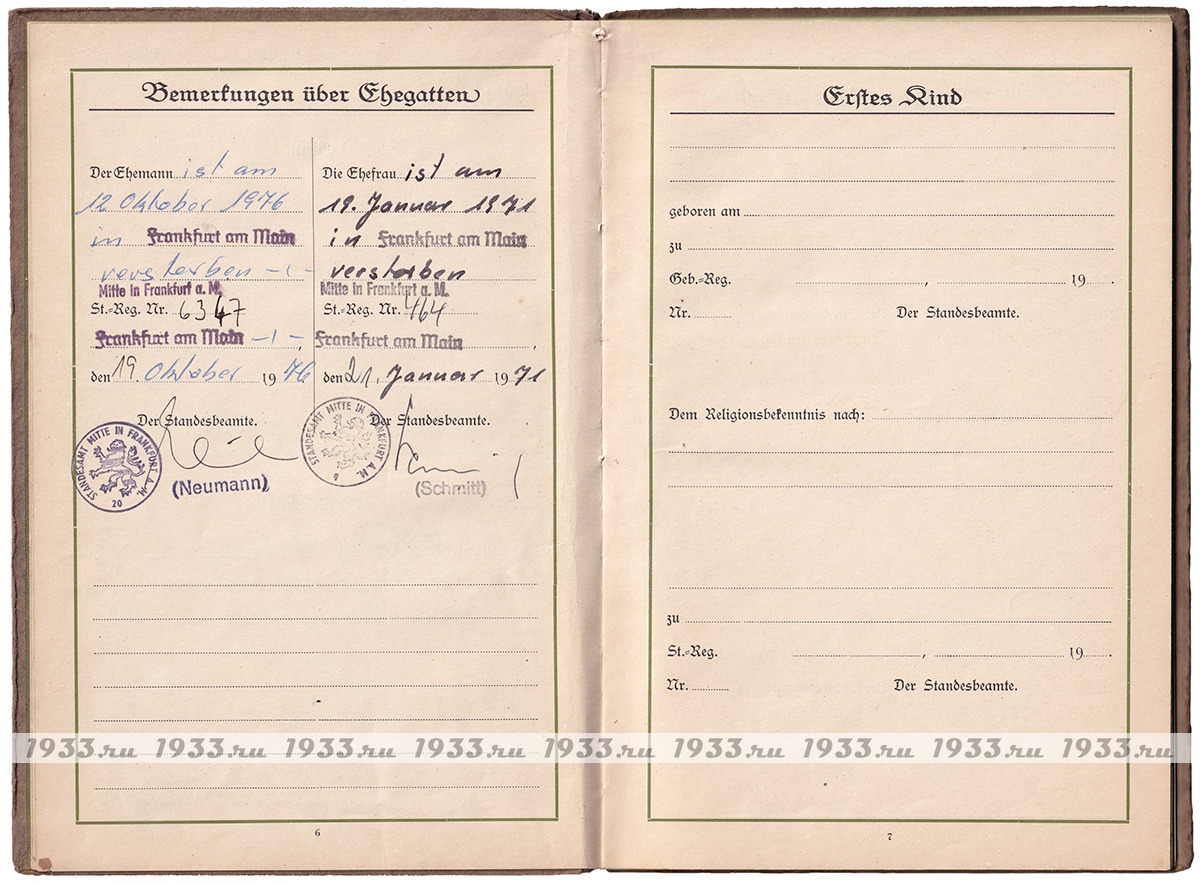 Bemerkungen über Ehegatten
Der Ehemann ist am
12 Oktober 1976
in Frankfurt am Main
verstorben -,-
Mitte in Frankfurt a. M.
St.=Reg. Nr. 6347
Frankfurt am Main -,- ,
den 19. Oktober 1976
Der Standesbeamte.
STANDESAMT MITTE IN FRANKFURT A. M.
20
(Neumann)
Die Ehefrau ist am
19. Januar 1971
in Frankfurt am Main
verstorben
Mitte in Frankfurt a. M.
St.=Reg. Nr. 464
Frankfurt am Main ,
den 21. Januar 1971
Der Standesbeamte.
STANDESAMT MITTE IN FRANKFURT A. M.
9
(Schmitt)
6
Erstes Kind
geboren am
zu
Geb.=Reg. , 19 .
Nr. Der Standesbeamte.
Dem Religionsbekenntnis nach:
zu
St.=Reg. , 19 .
Nr. Der Standesbeamte.
7
1933.ru 1933.ru 1933.ru 1933.ru 1933.ru 1933.ru 1933.ru 1933.ru 1933.ru